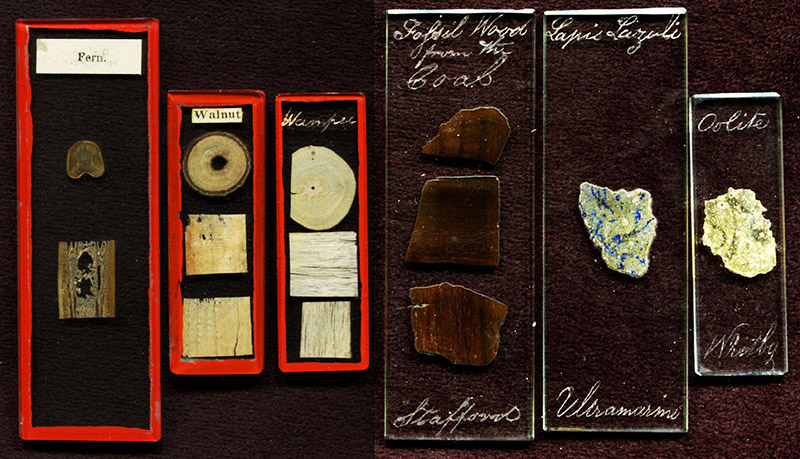 Fern.
Walnut
Wampee
Fossil Wood
from the
Coal
Stafford
Lapis Lazuli
Ultramarine
Oolite
Whitby